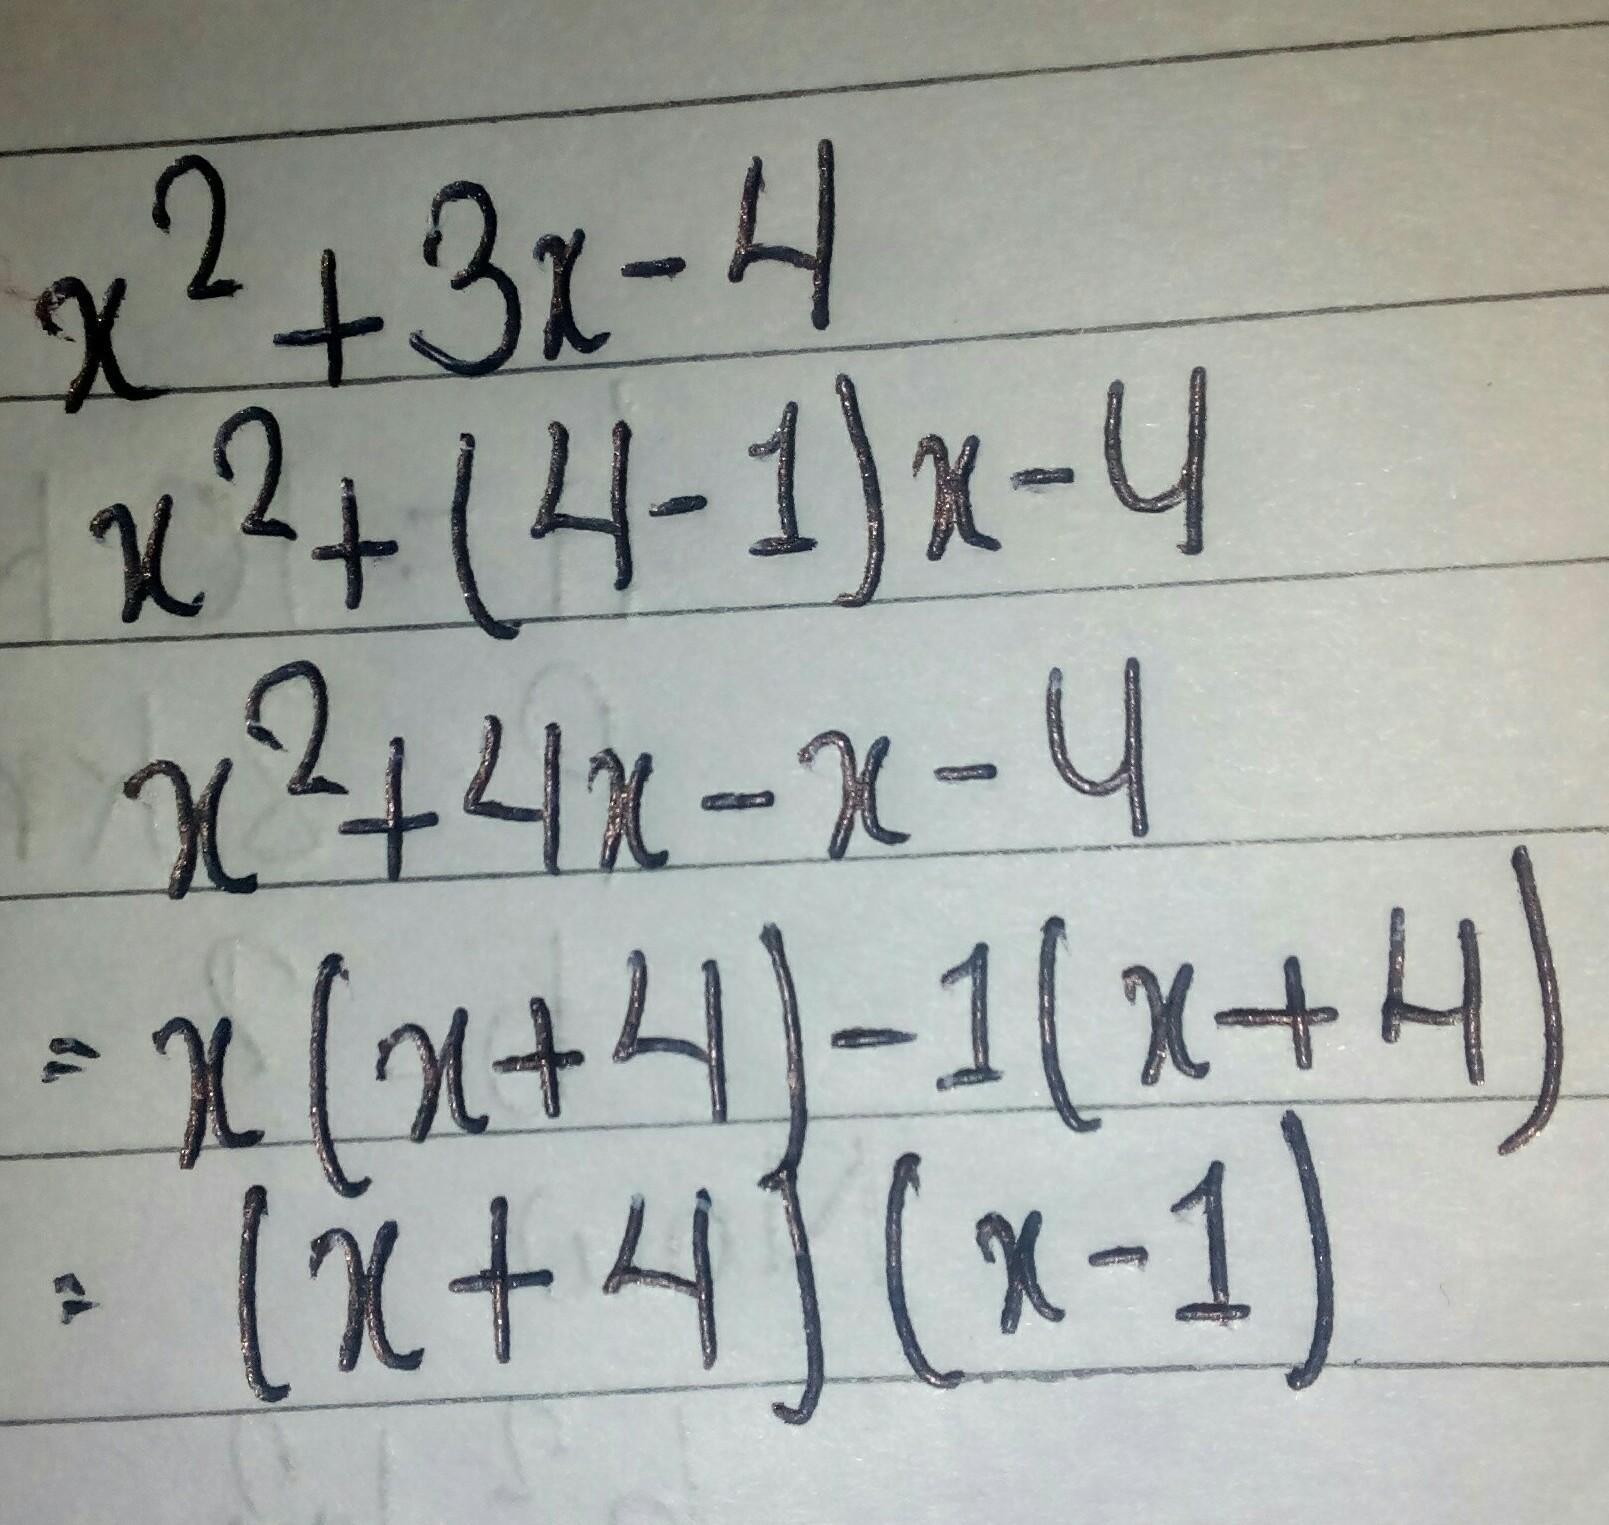 x² + 3x - 4
x² + (4 - 1)x - 4
x² + 4x - x - 4
= x(x + 4) - 1(x + 4)
= (x + 4)(x - 1)